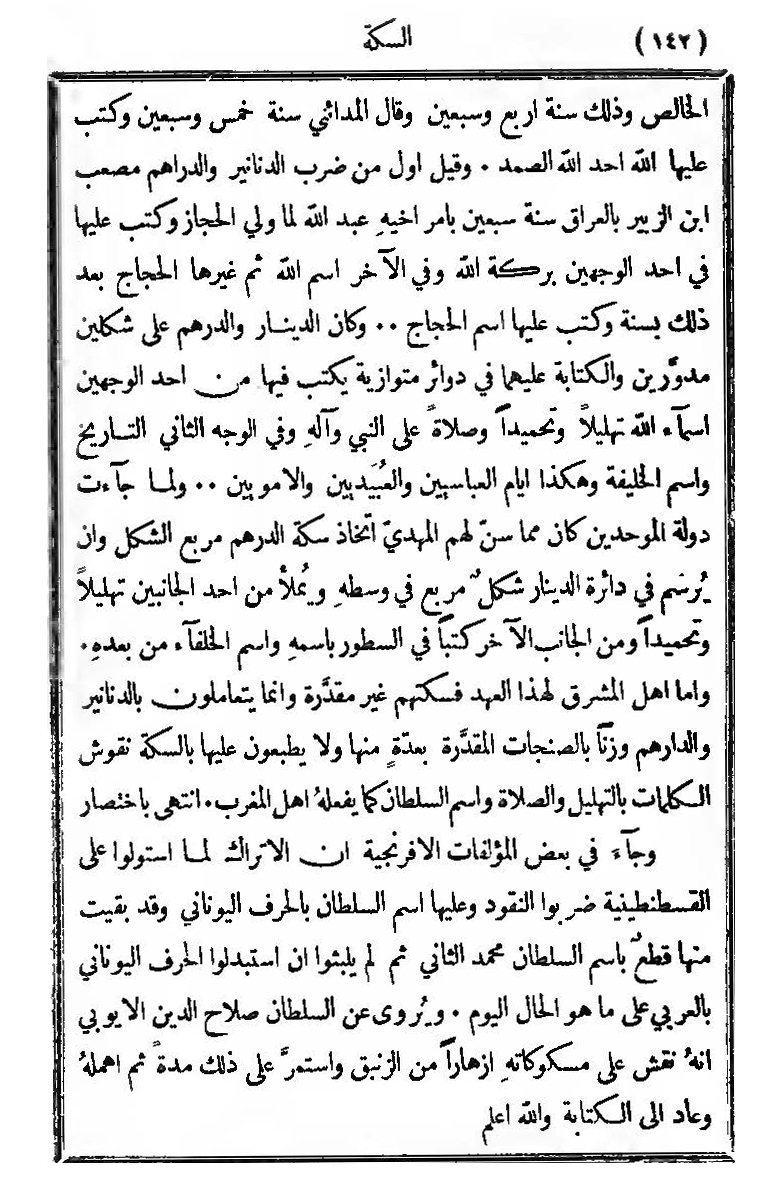 (١٤٢) السكة
الخالص وذلك سنة اربع وسبعين وقال المدائني سنة خمس وسبعين وكتب
عليها الله احد الله الصمد ٠ وقيل اول من ضرب الدنانير والدراهم مصعب
ابن الزبير بالعراق سنة سبعين بامر اخيهِ عبد الله لما ولي الحجاز وكتب عليها
في احد الوجهين بركة الله وفي الآخر اسم الله ثم غيرها الحجاج بعد
ذلك بسنة وكتب عليها اسم الحجاج ٠٠ وكان الدينار والدرهم على شكلين
مدوَّرين والكتابة عليهما في دوائر متوازية يكتب فيها من احد الوجهين
اسمآء الله تهليلاً وتحميداً وصلاةً على النبي وآلهِ وفي الوجه الثاني التاريخ
واسم الخليفة وهكذا ايام العباسيين والعُبَيديين والامويين ٠٠ ولما جآءت
دولة الموحدين كان مما سنّ لهم المهديّ اتخاذ سكة الدرهم مربع الشكل وان
يُرسَم في دائرة الدينار شكلٌ مربع في وسطهِ ويُملأ من احد الجانبين تهليلاً
وتحميداً ومن الجانب الآخر كتباً في السطور باسمهِ واسم الخلفآء من بعدهِ ٠
واما اهل المشرق لهذا العهد فسكتهم غير مقدَّرة وانما يتعاملون بالدنانير
والدارهم وزناً بالصنجات المقدَّرة بعدّةٍ منها ولا يطبعون عليها بالسكة نقوش
الكلمات بالتهليل والصلاة واسم السلطان كما يفعلهُ اهل المغرب ٠ انتهى باختصار
وجآء في بعض المؤلفات الافرنجية ان الاتراك لما استولوا على
القسطنطينية ضربوا النقود وعليها اسم السلطان بالحرف اليوناني وقد بقيت
منها قطعٌ باسم السلطان محمد الثاني ثم لم يلبثوا ان استبدلوا الحرف اليوناني
بالعربي على ما هو الحال اليوم ٠ ويُروى عن السلطان صلاح الدين الايوبي
انهُ نقش على مسكوكاتهِ ازهاراً من الزنبق واستمرَّ على ذلك مدةً ثم اهملهُ
وعاد الى الكتابة والله اعلم